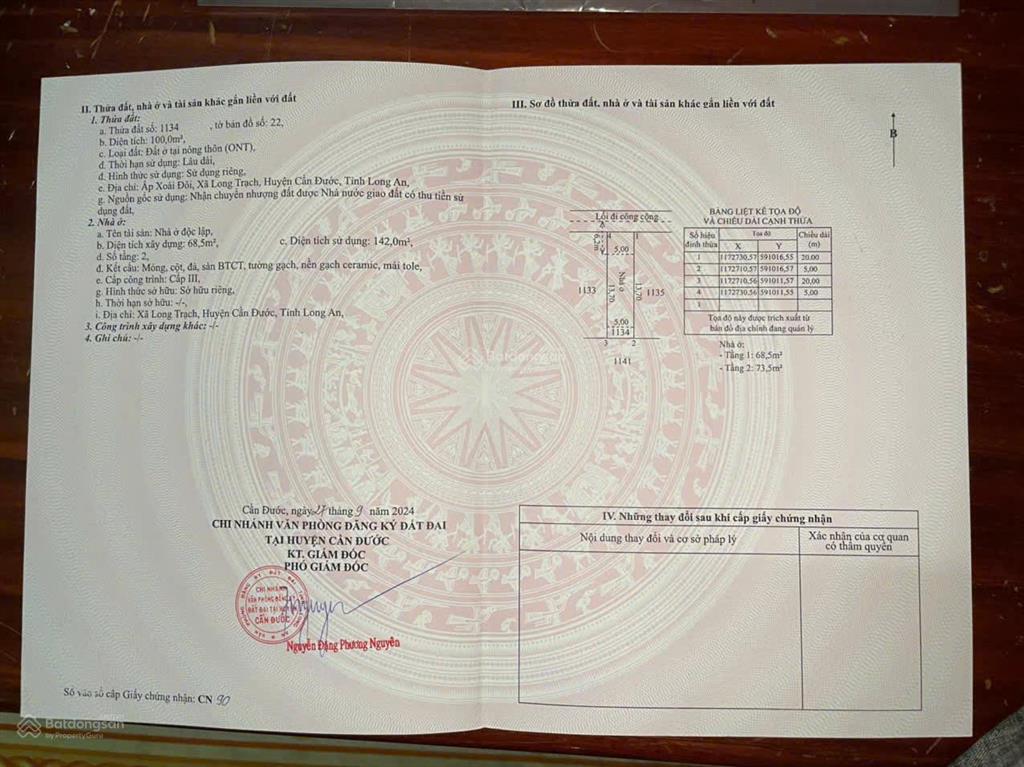 II. Thửa đất, nhà ở và tài sản khác gắn liền với đất
1. Thửa đất:
a. Thửa đất số: 1134 , tờ bản đồ số: 22,
b. Diện tích: 100,0m²,
c. Loại đất: Đất ở tại nông thôn (ONT),
d. Thời hạn sử dụng: Lâu dài,
đ. Hình thức sử dụng: Sử dụng riêng,
e. Địa chỉ: Ấp Xoài Đôi, Xã Long Trạch, Huyện Cần Đước, Tỉnh Long An,
g. Nguồn gốc sử dụng: Nhận chuyển nhượng đất được Nhà nước giao đất có thu tiền sử
dụng đất,
2. Nhà ở:
a. Tên tài sản: Nhà ở độc lập,
b. Diện tích xây dựng: 68,5m², c. Diện tích sử dụng: 142,0m²,
d. Số tầng: 2,
đ. Kết cấu: Móng, cột, đà, sàn BTCT, tường gạch, nền gạch ceramic, mái tole,
e. Cấp công trình: Cấp III,
g. Hình thức sở hữu: Sở hữu riêng,
h. Thời hạn sở hữu: -/-,
i. Địa chỉ: Xã Long Trạch, Huyện Cần Đước, Tỉnh Long An,
3. Công trình xây dựng khác: -/-
4. Ghi chú: -/-
Cần Đước, ngày 27 tháng 9 năm 2024
CHI NHÁNH VĂN PHÒNG ĐĂNG KÝ ĐẤT ĐAI
TẠI HUYỆN CẦN ĐƯỚC
KT. GIÁM ĐỐC
PHÓ GIÁM ĐỐC
CHI NHÁNH
VĂN PHÒNG ĐĂNG
ĐẤT ĐAI TẠI
CẦN ĐƯỚC
Nguyễn Đặng Phương Nguyên
Số vào sổ cấp Giấy chứng nhận: CN 90
III. Sơ đồ thửa đất, nhà ở và tài sản khác gắn liền với đất
B
Lối đi công cộng
4 1
6,2m
5,00
1133
13,70
Nhà ở
13,70
1135
5,00
1134
3 2
1141
BẢNG LIỆT KÊ TỌA ĐỘ
VÀ CHIỀU DÀI CẠNH THỬA
Số hiệu đỉnh thửa Tọa độ Chiều dài (m)
X Y
1 1172730,57 591016,55 20,00
2 1172710,57 591016,57 5,00
3 1172710,56 591011,57 20,00
4 1172730,56 591011,55 5,00
1
Tọa độ này được trích xuất từ
bản đồ địa chính đang quản lý
Nhà ở:
- Tầng 1: 68,5m²
- Tầng 2: 73,5m²
IV. Những thay đổi sau khi cấp giấy chứng nhận
Nội dung thay đổi và cơ sở pháp lý
Xác nhận của cơ quan
có thẩm quyền
Batdongsan
Batdongsan
by PropertyGuru